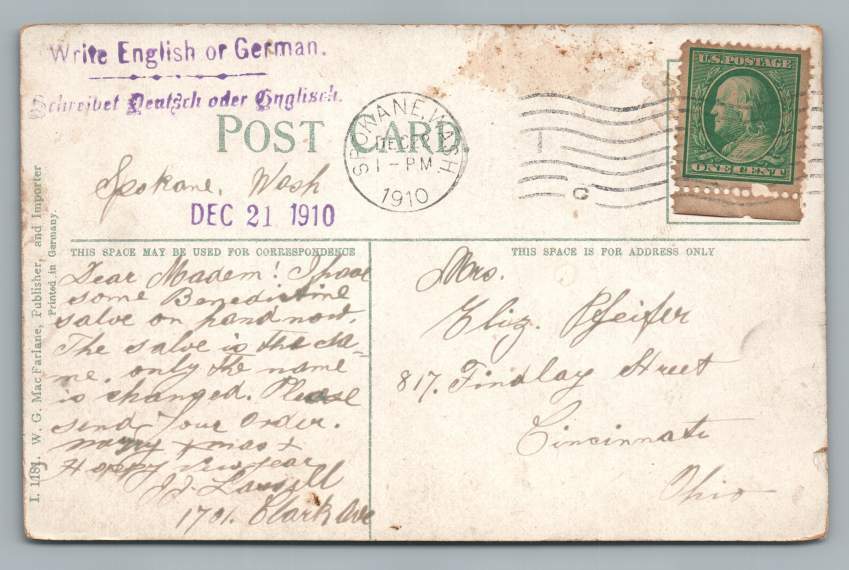 Write English or German.
Schreibet Deutsch oder Englisch.
POST CARD.
SPOKANE, WASH.
DEC
1-PM
1910
U.S. POSTAGE
ONE CENT
C
Spokane, Wash
DEC 21 1910
THIS SPACE MAY BE USED FOR CORRESPONDENCE
THIS SPACE IS FOR ADDRESS ONLY
I. 1181. W. G. Mac Farlane, Publisher, and Importer
Printed in Germany.
Dear Madem! I have
some Benedictine
salve on hand now.
The salve is the sa-
me, only the name
is changed. Please
send your order.
Marry Xmas +
Happy New Year
J. J.
1701. Clark Ave
Mrs.
Eliz. Pfeifer
817. Findlay Street
Cincinnati
Ohio